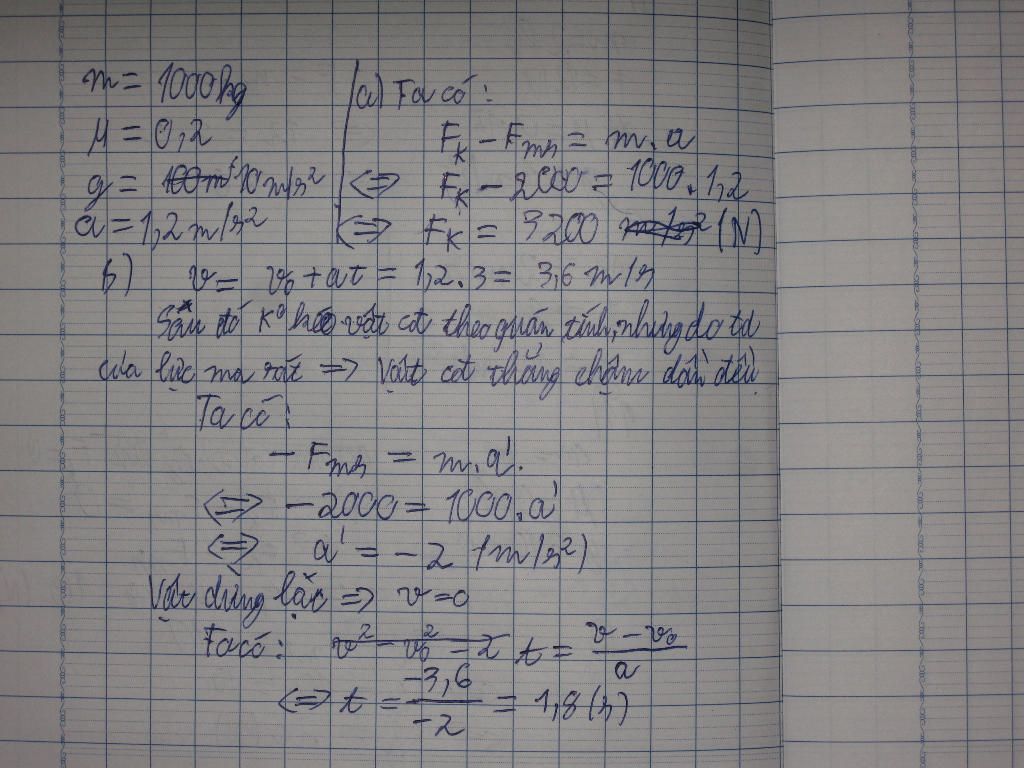 m = 1000kg
μ = 0,2
g = 10 m/s²
a = 1,2 m/s²
a) Ta có:
Fk - Fms = m.a
<=> Fk - 2000 = 1000.1,2
<=> Fk = 3200 (N)
b) v = v₀ + at = 1,2.3 = 3,6 m/s
Sau đó k⁰ kéo vật cđ theo quán tính, nhưng do td
của lực ma sát => Vật cđ thẳng chậm dần đều
Ta có:
- Fms = m.a'.
<=> -2000 = 1000.a'
<=> a' = -2 (m/s²)
Vật dừng lại => v=0
Ta có: t = (v - v₀)/a
<=> t = -3,6/-2 = 1,8 (s)